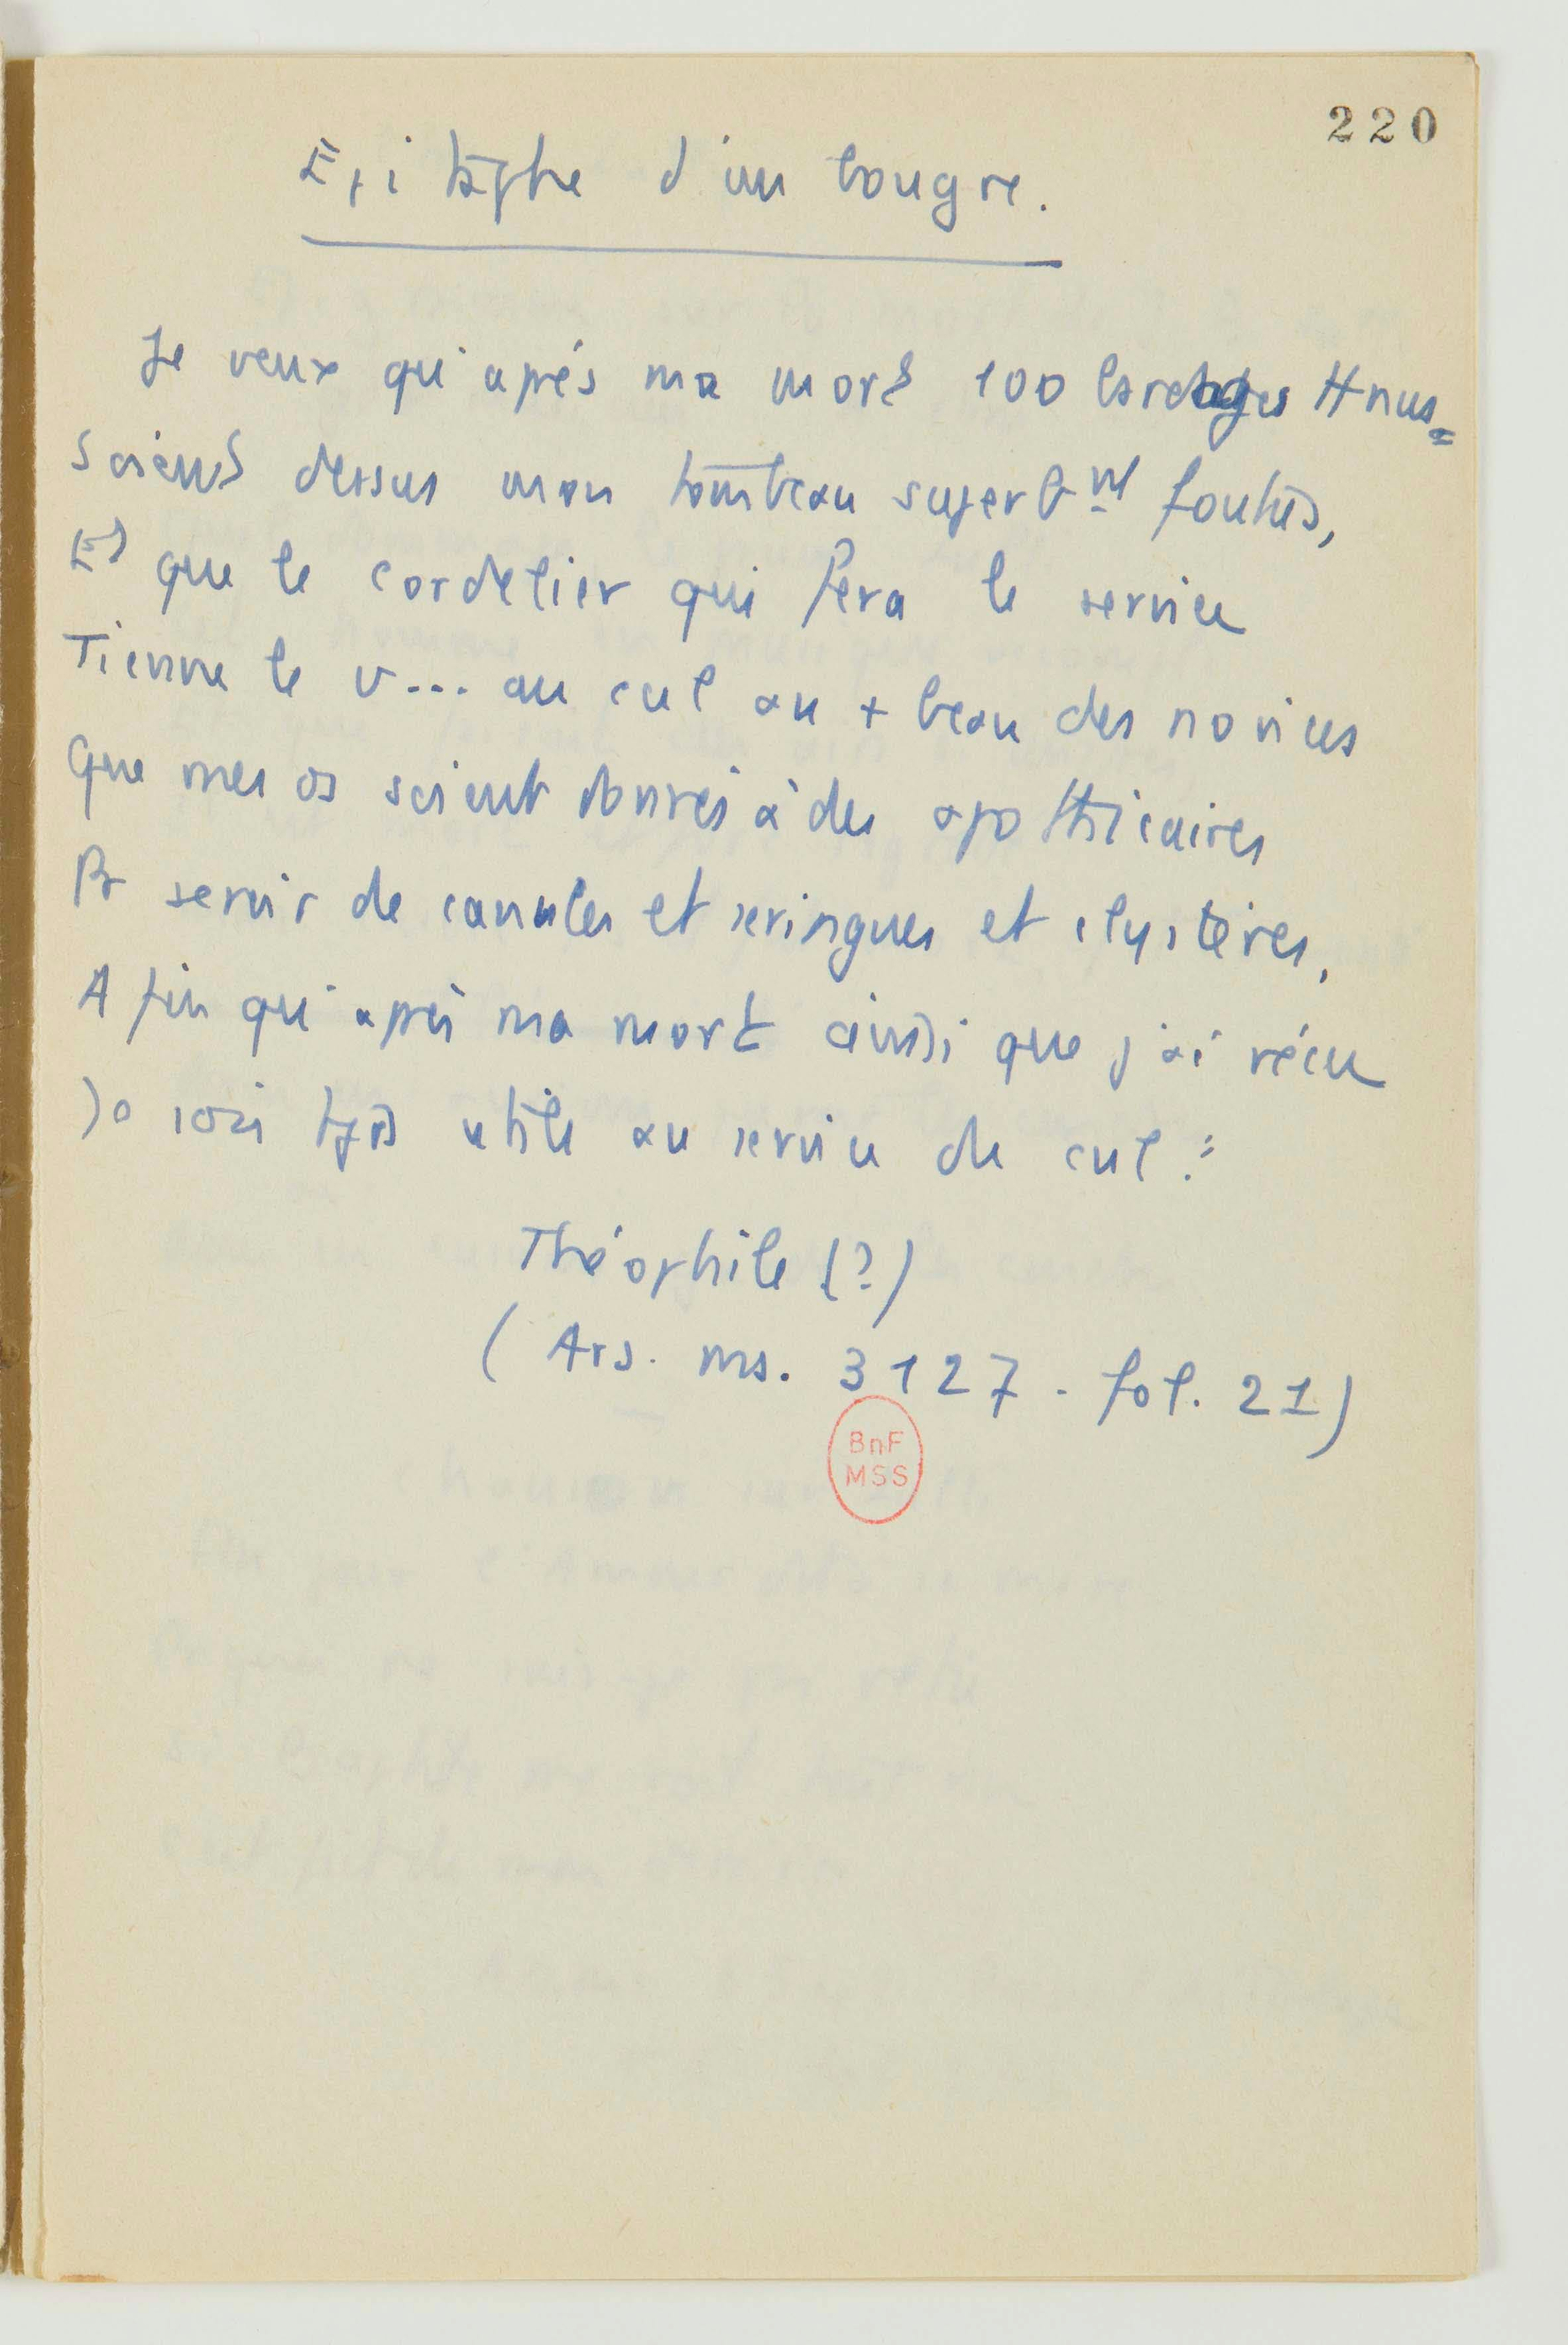 220
Epitaphe d'un bougre.
Je veux qu'après ma mort 100 bardaches tt nus
Soient dessus mon tombeau superbmt foutus,
Et que le cordelier qui fera le service
Tienne le v... au cul au + beau des novices
Que mes os soient donnés à des apothicaires
Pr servir de canules et seringues et clystères,
Afin qu'après ma mort ainsi que j'ai vécu
Je sois tjrs utile au service de cul :
Théophile (?)
(Ars. ms. 3127 - fol. 21)
BnF
MSS